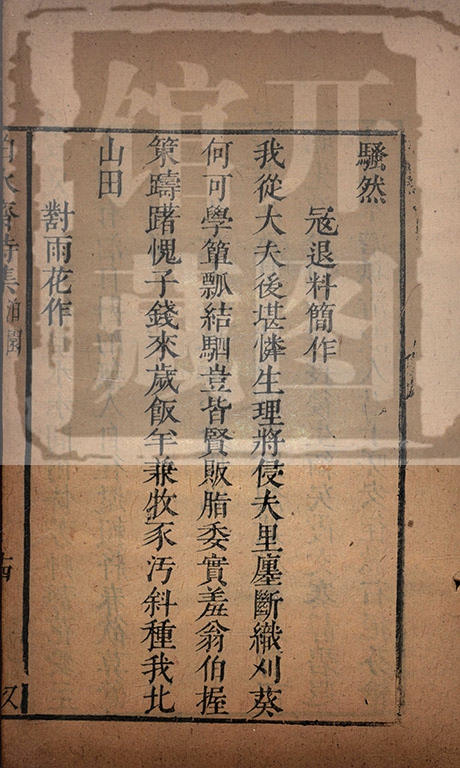 騷然
冦退料簡作
我從大夫後堪憐生理將侵夫里廛斷織刈葵
何可學簞瓢結駟豈皆賢販脂委實羞翁伯握
策躊躇愧子錢來歲飯牛兼牧豕汚斜種我北
山田
對雨花作
水齋詩集
开图
馆藏